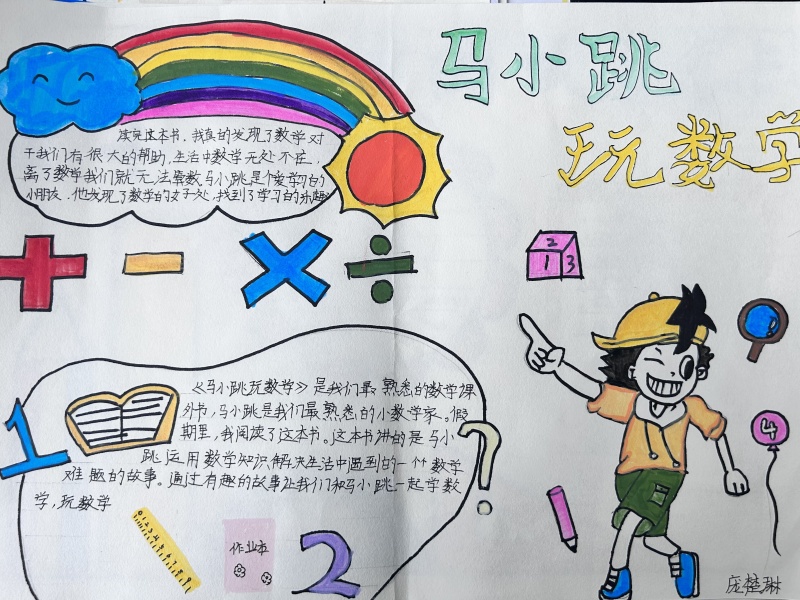 马小跳
玩数学
读完这本书，我真的发现了数学对
于我们有很大的帮助，生活中数学无处不在，
离了数学我们就无法算数马小跳是个爱学习的
小朋友，他发现了数学的好处，找到了学习的乐趣
2
1 3
《马小跳玩数学》是我们最熟悉的数学课
外书，马小跳是我们最熟悉的小数学家。假
期里，我阅读了这本书。这本书讲的是马小
跳运用数学知识解决生活中遇到的一个数学
难题的故事。通过有趣的故事让我们和马小跳一起学数
学，玩数学
1
?
4
作业本
2
庞楚琳